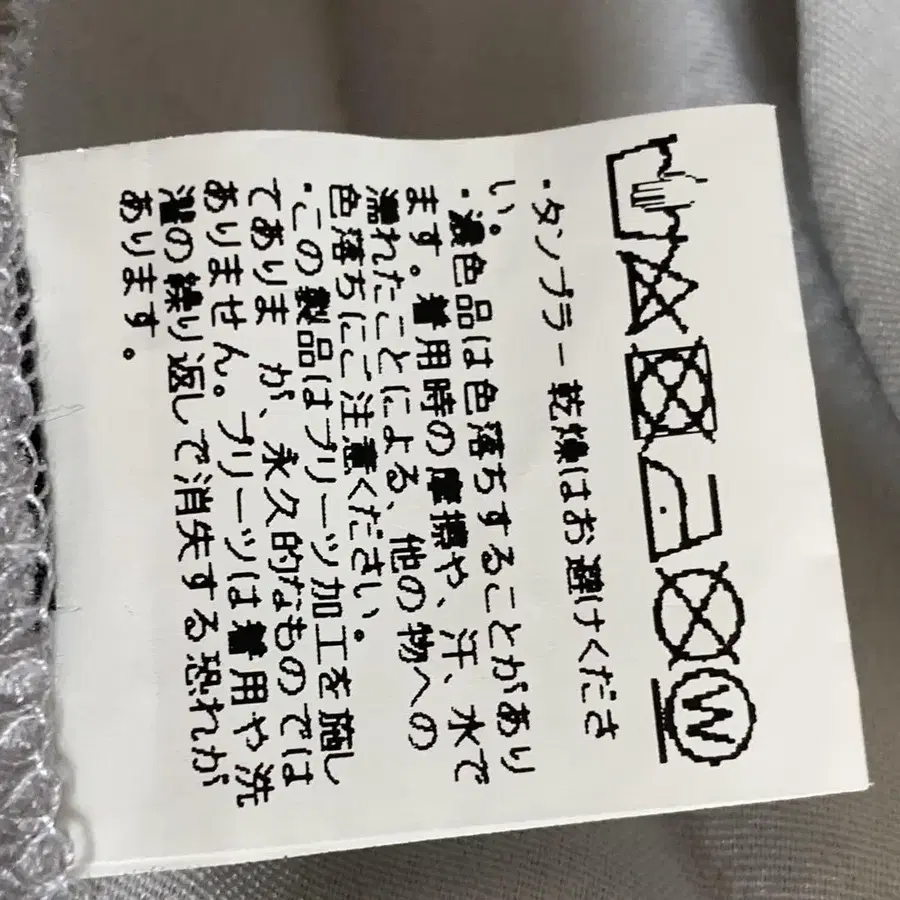 W
・タンブラー乾燥はお避けくださ
い。
・濃色品は色落ちすることがあり
ます。着用時の摩擦や、汗、水で
濡れたことによる、他の物への
色落ちにご注意ください。
・この製品はプリーツ加工を施し
てありま が、永久的なものでは
ありません。プリーツは着用や洗
濯の繰り返しで消失する恐れが
あります。